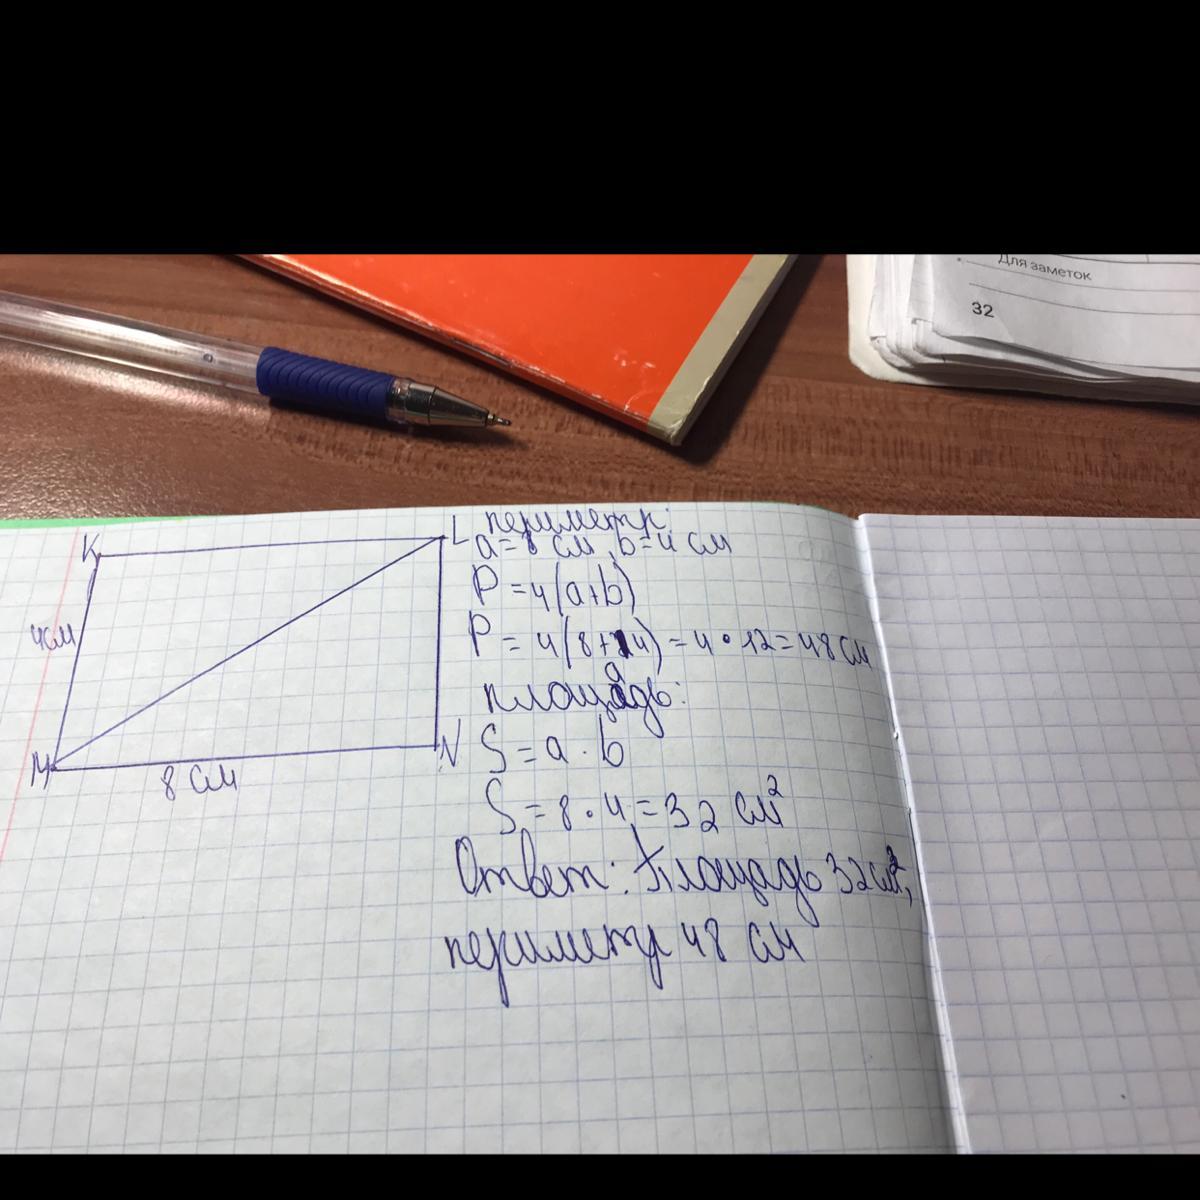 Для заметок
32
K
L
4см
M
N
8 см
периметр:
a=8 см, b=4 см
P=4(a+b)
P=4(8+4)=4·12=48см
площадь:
S=a·b
S=8·4=32 см²
Ответ: площадь 32см²,
периметр 48 см